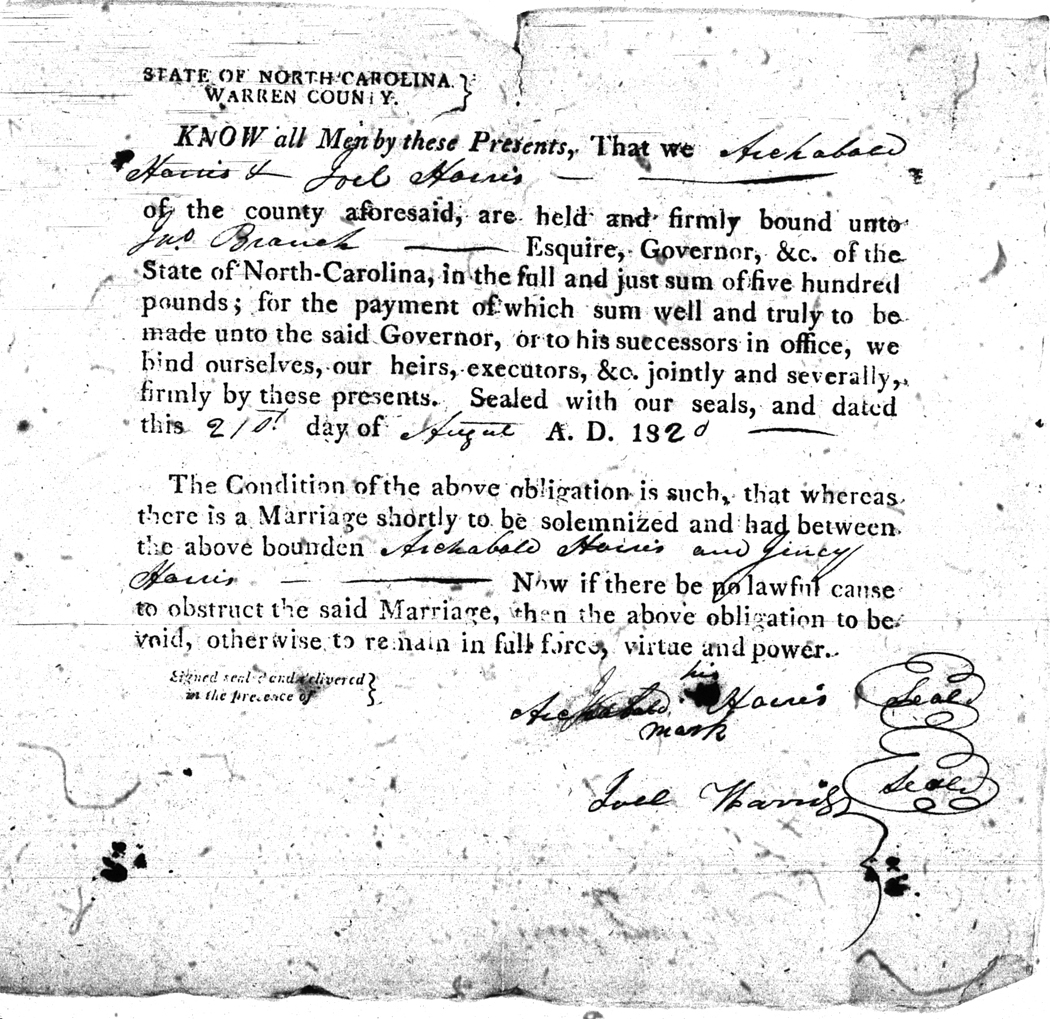 STATE OF NORTH CAROLINA.
WARREN COUNTY.
KNOW all Men by these Presents, That we Archabald
Harris & Joel Harris
of the county aforesaid, are held and firmly bound unto
Jno. Branch Esquire, Governor, &c. of the
State of North-Carolina, in the full and just sum of five hundred
pounds; for the payment of which sum well and truly to be
made unto the said Governor, or to his successors in office, we
bind ourselves, our heirs, executors, &c. jointly and severally,
firmly by these presents. Sealed with our seals, and dated
this 21st day of August A. D. 1820
The Condition of the above obligation is such, that whereas
there is a Marriage shortly to be solemnized and had between
the above bounden Archabald Harris and Jincy
Harris Now if there be no lawful cause
to obstruct the said Marriage, then the above obligation to be
void, otherwise to remain in full force, virtue and power.
Signed seal'd and delivered
in the presence of
his
Archabald Harris Seal
mark
Joel Harris Seal